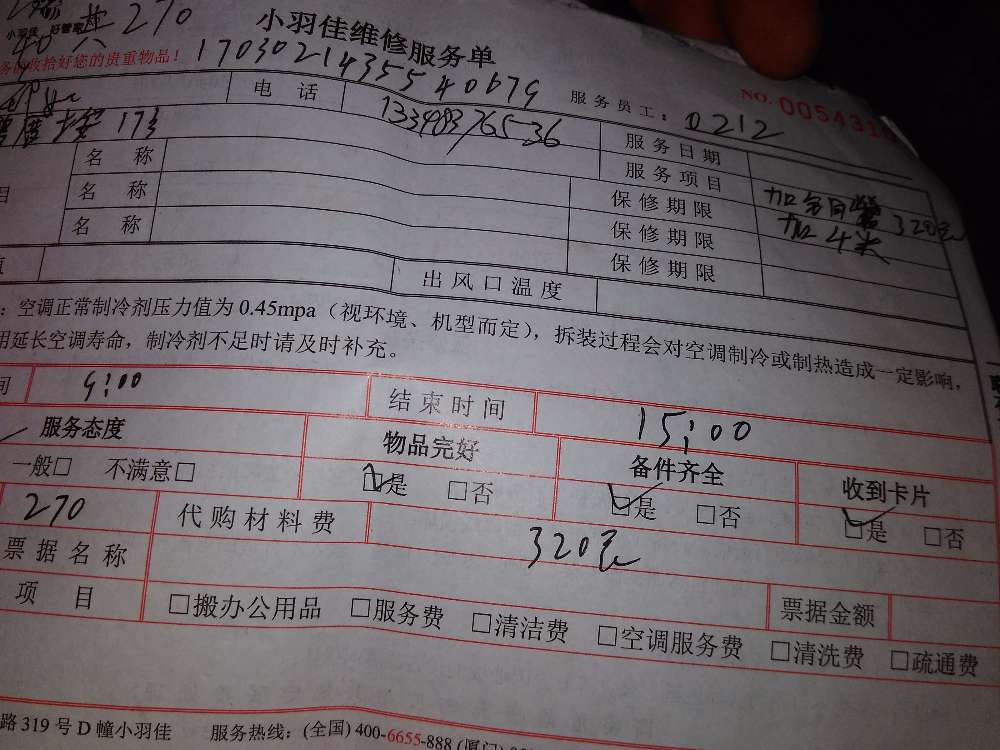 小羽佳 好管家 共270
小羽佳维修服务单
收拾好您的贵重物品！
17030214355540679
服务员工：0212
NO.
电话
13348376536
173
服务日期
名称
服务项目
名称
保修期限
320元
名称
保修期限
加4米
保修期限
出风口温度
：空调正常制冷剂压力值为0.45mpa（视环境、机型而定），拆装过程会对空调制冷或制热造成一定影响，
用延长空调寿命，制冷剂不足时请及时补充。
间 9:00 结束时间 15:00
服务态度 物品完好 备件齐全 收到卡片
一般□ 不满意□ □是 □否 □是 □否 □是 □否
270 代购材料费 320元
票据名称 票据金额
项目 □搬办公用品 □服务费 □清洁费 □空调服务费 □清洗费 □疏通费
路319号D幢小羽佳 服务热线：(全国) 400-6655-888 (厦门)